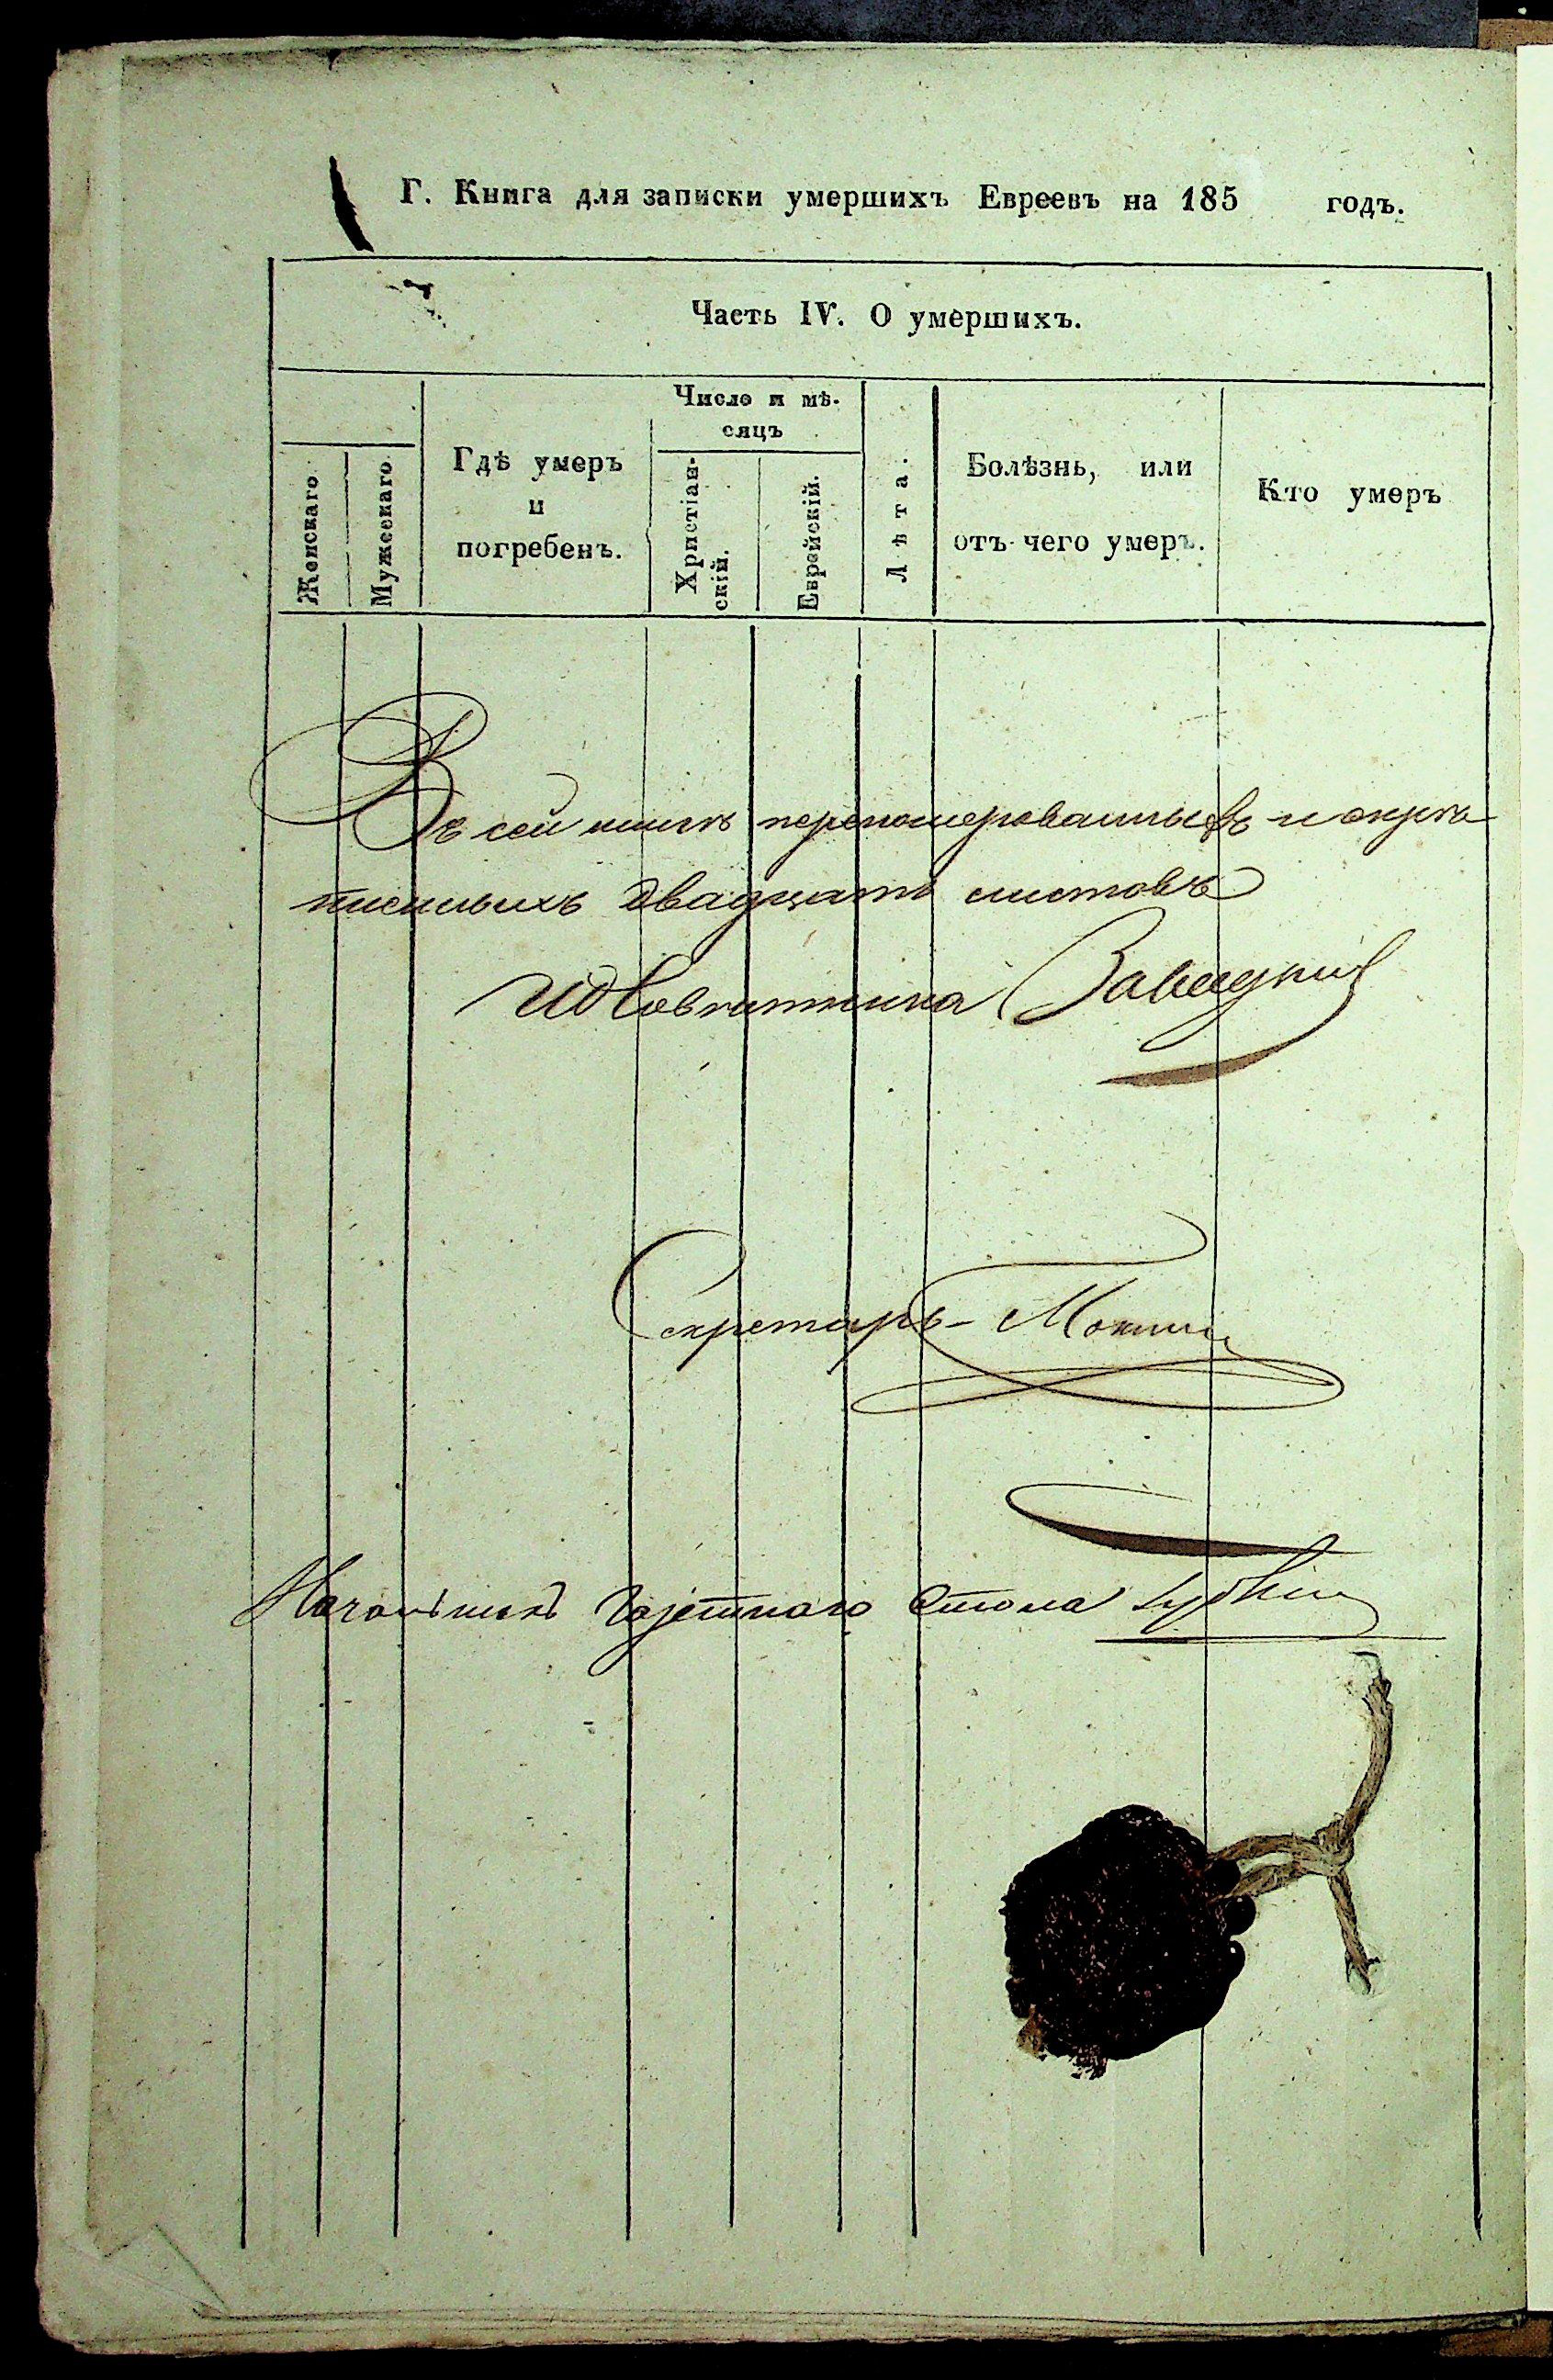 Г. Книга для записки умершихъ Евреевъ на 185 годъ.
Часть IV. О умершихъ.
Женскаго
Мужескаго
Гдѣ умеръ
и
погребенъ.
Число и мѣ-
сяцъ
Христіан-
скій.
Еврейскій.
Лѣта.
Болѣзнь, или
отъ чего умеръ.
Кто умеръ
Въ сей книгѣ перенумерованныхъ и скрѣ
пленныхъ двадцать листовъ
ИД Совѣтника Завадскій
Секретарь
Начальникъ Газетнаго Стола